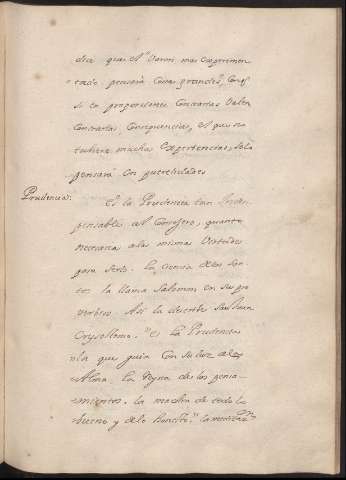 dice que el Varon mas experimen-
tado pensará Cosas grandes, Como
si en proporciones Contrarias Valen
Contrarias, Consequencias, el que no
tubiere mucha Experiencias, Solo
pensará en puerelidades
Prudencia: Es la Prudencia tan Indis-
pensable al Consejero, quanto
necesaria a las mismas Virtudes
para Serlo. La Ciencia de los San-
tos la llama Salomon en su pro
verbios. Asi la describe San Juan
Crysostomo. "es La Prudencia
"la que guia Con su luz al
Alma, la Reyna de los pensa-
mientos, la madre de todo lo
bueno y de lo honesto."